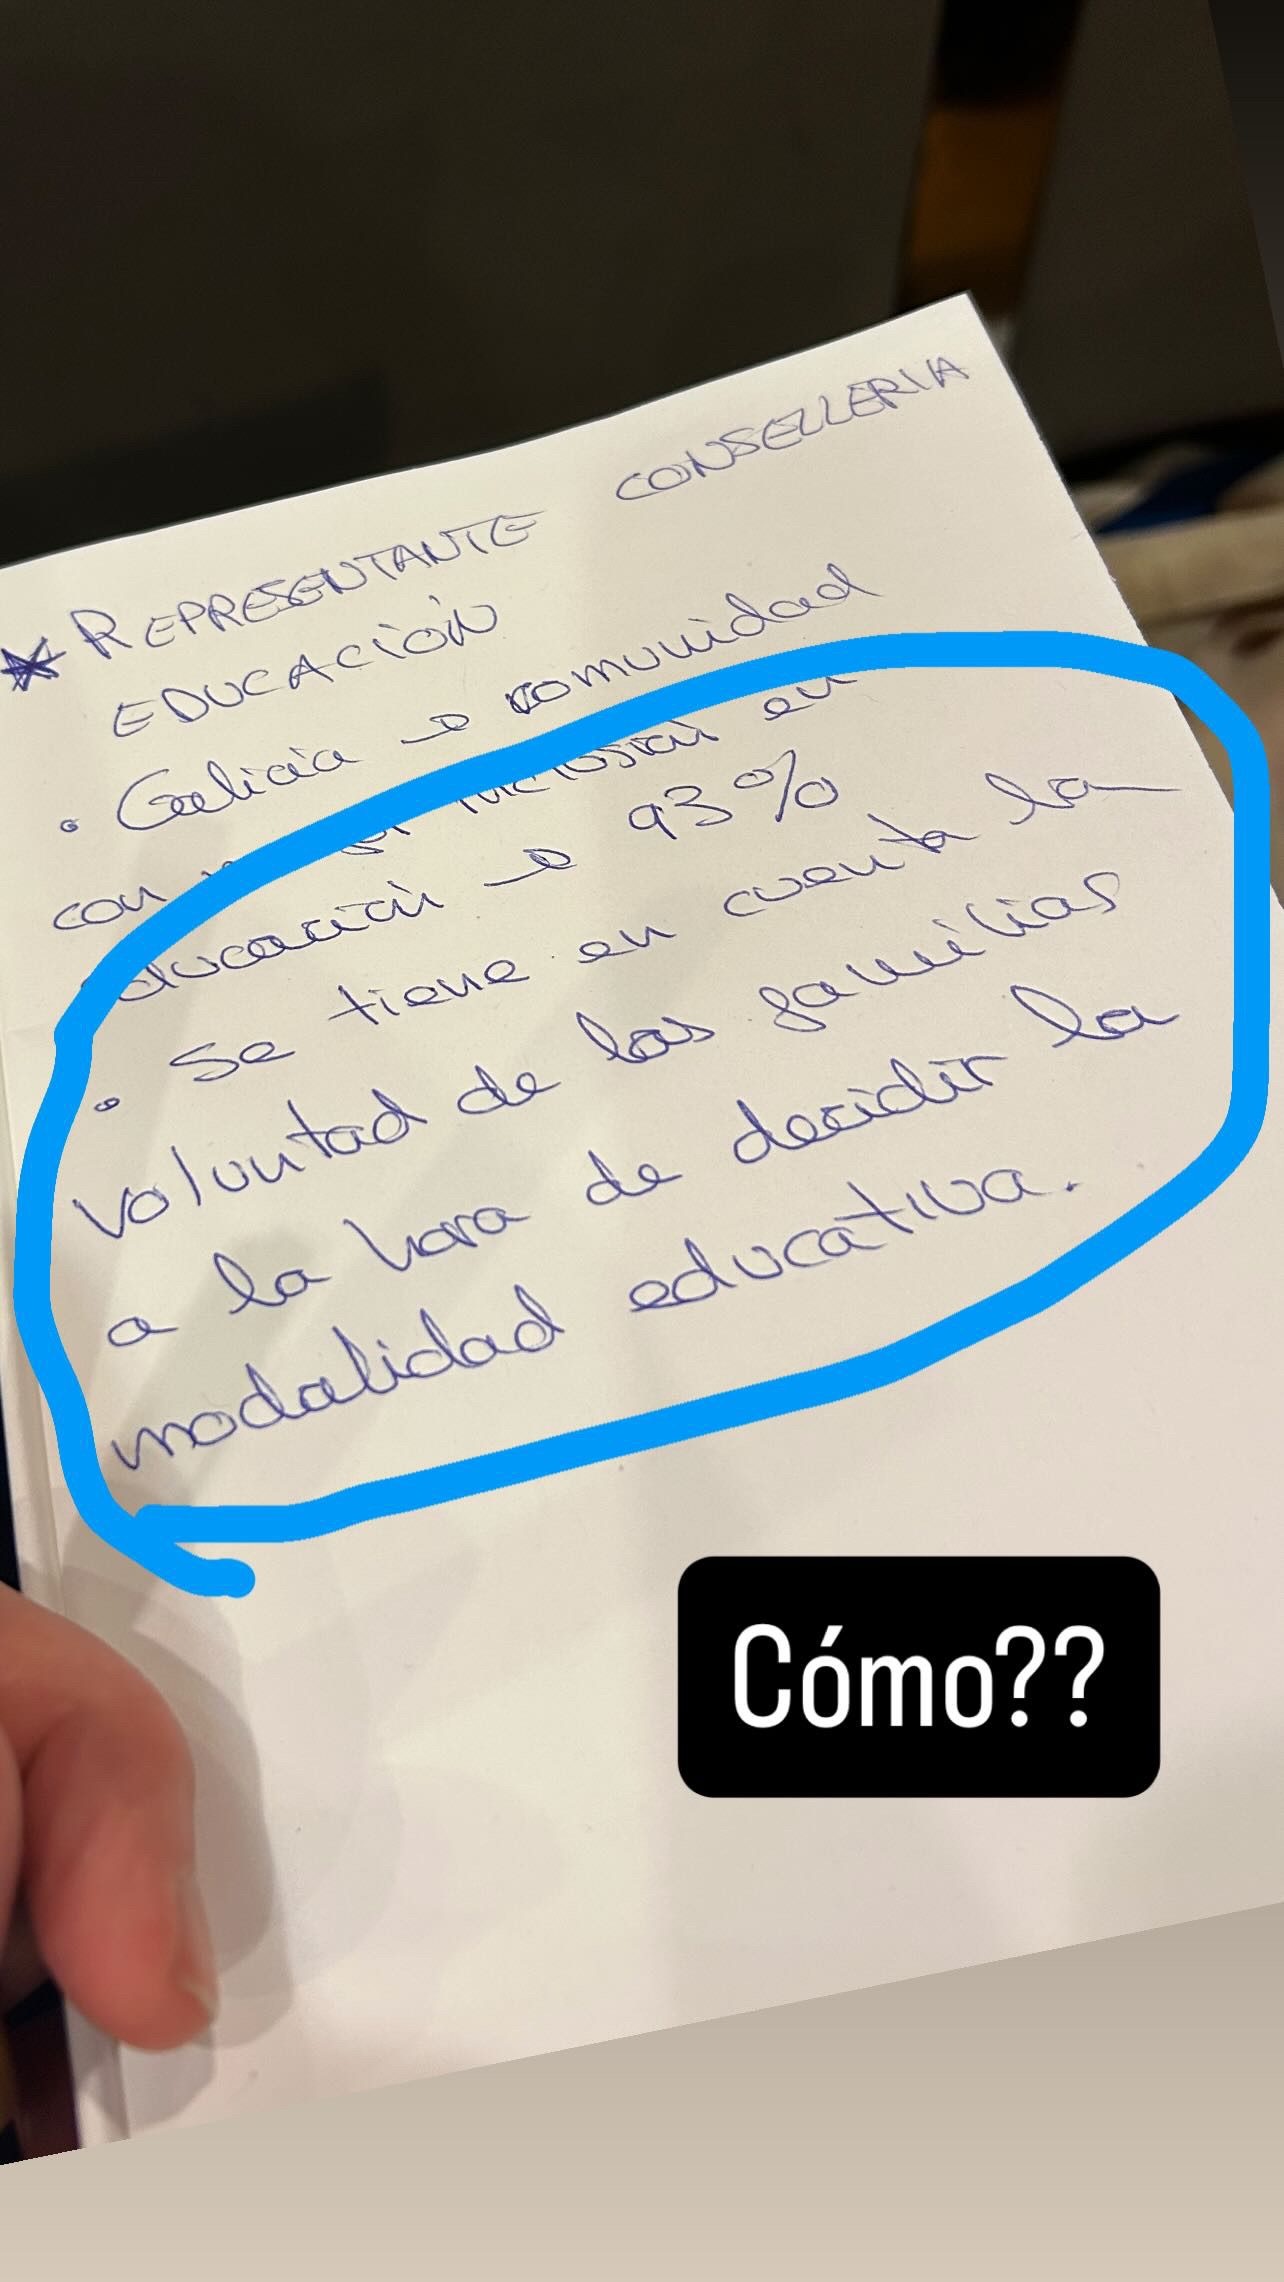 * REPRESENTANTE CONSELLERIA
EDUCACIÓN
• Galicia → comunidad
con inclusión en
educación → 93%
• Se tiene en cuenta la
voluntad de las familias
a la hora de decidir la
modalidad educativa.
Cómo??